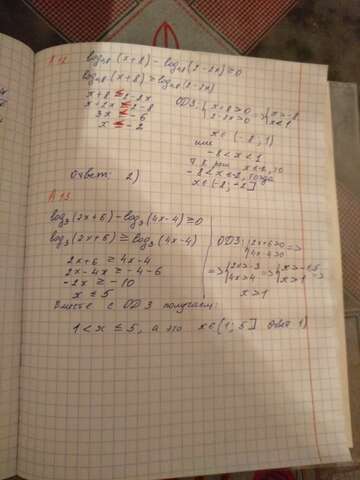 A 12
log₀,₈ (x+8) − log₀,₈ (2−2x) ≥ 0
log₀,₈ (x+8) ≥ log₀,₈ (2−2x)
x+8 ≤ 2−2x
x+2x ≤ 2−8
3x ≤ −6
x ≤ −2
ОДЗ: { x+8>0 2−2x>0 => { x>−8 x<1
x∈(−8; 1)
или
−8<x<1
x≤−2, то
−8<x≤−2, тогда
x∈(−8; −2]
Ответ: 2)
A 13
log₃ (2x+6) − log₃ (4x−4) ≥ 0
log₃ (2x+6) ≥ log₃ (4x−4)
2x+6 ≥ 4x−4
2x−4x ≥ −4−6
−2x ≥ −10
x ≤ 5
ОДЗ: { 2x+6>0 4x−4>0 =>
=> { 2x>−3 4x>4 => { x>−1,5 x>1 =>
x>1
Вместе с ОДЗ получаем:
1 < x ≤ 5, а это x∈(1; 5] Ответ 1)